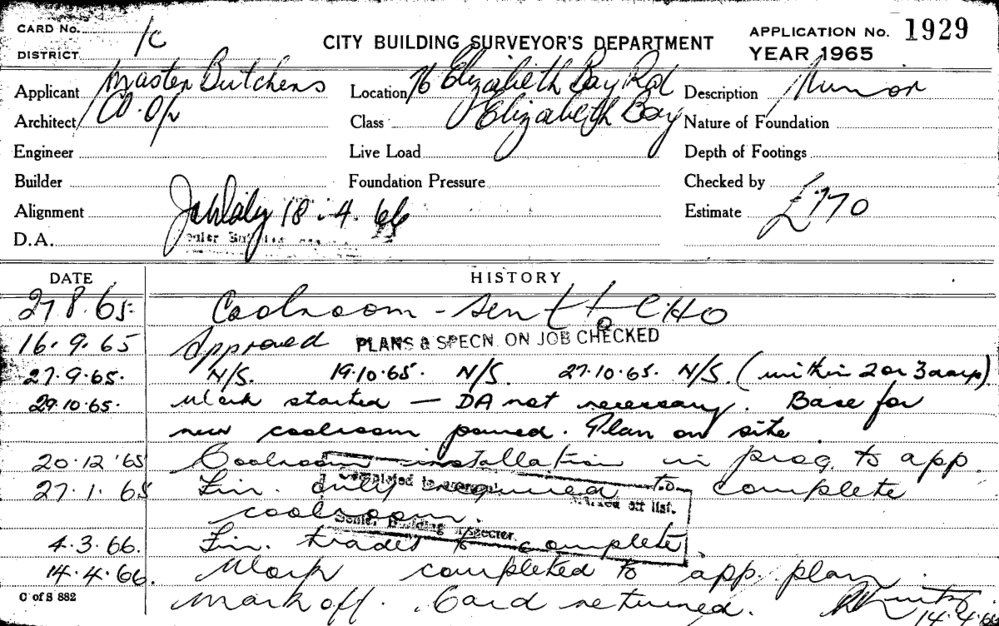 CARD No. 1C
DISTRICT
CITY BUILDING SURVEYOR'S DEPARTMENT
APPLICATION No. 1929
YEAR 1965
Applicant Master Butchers
Location 76 Elizabeth Bay Rd
Description Minor
Architect
Class Elizabeth Bay
Nature of Foundation
Engineer
Live Load
Depth of Footings
Builder
Foundation Pressure
Checked by
Alignment 18.4.66
Estimate £770
D.A.
DATE HISTORY
27.8.65 Coolroom - sent to CHO
16.9.65 Approved PLANS & SPECN. ON JOB CHECKED
27.9.65. N/S. 19.10.65. N/S. 27.10.65. N/S. (within 2 or 3 days)
29.10.65. Work started — DA not necessary. Base for
new coolroom poured. Plan on site
20.12.65 Coolroom installation in prog. to app.
27.1.65 Fin. only required to complete
coolroom.
Senior Building Inspector.
4.3.66. Fin. trades to complete
14.4.66. Work completed to app. plan.
C of S 882
Mark off. Card returned.
14.4.66